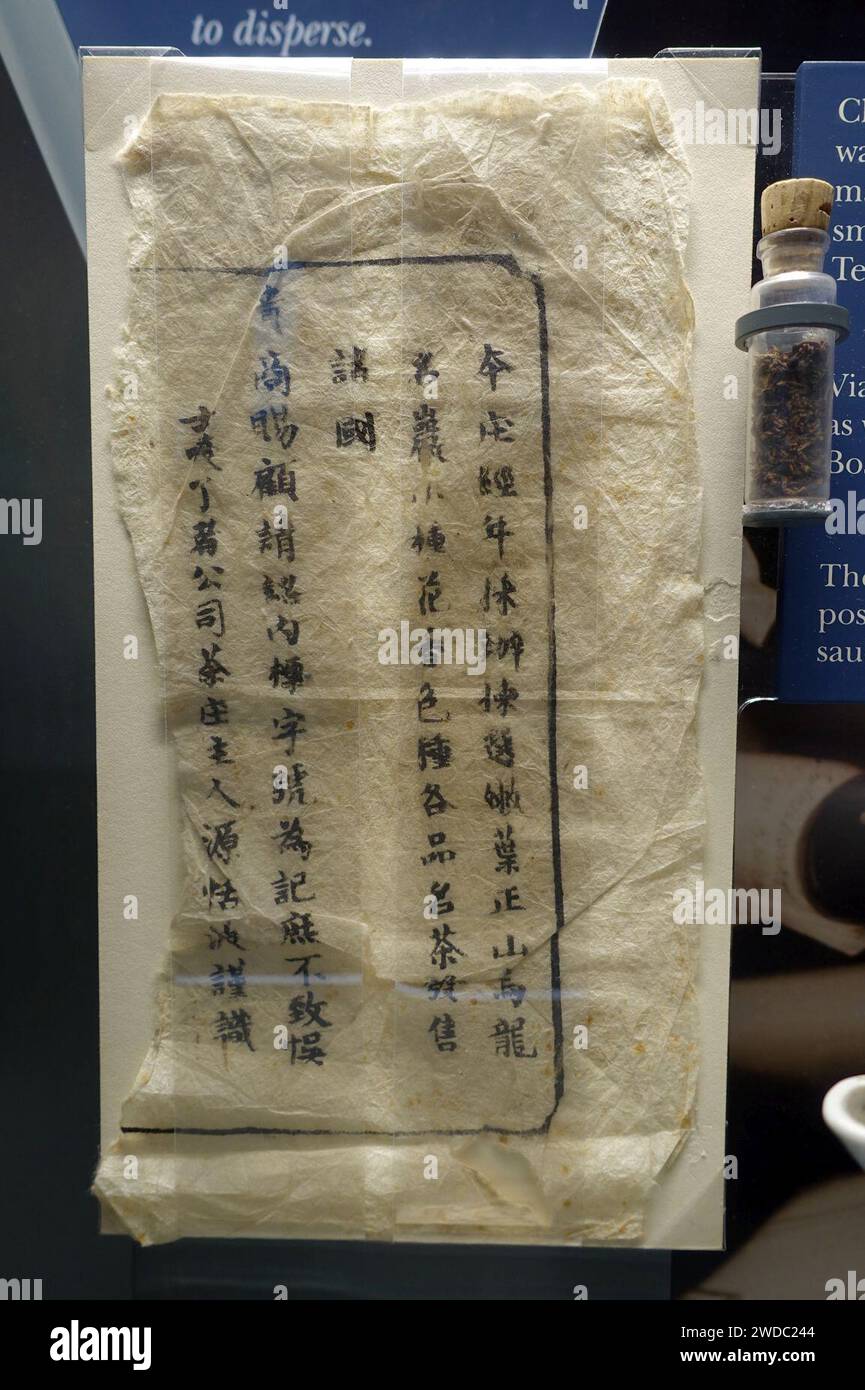 to disperse.
本庄經年採辦揀選嫩葉正山烏龍
名巖小種花香色種各品名茶發售
諸國
貴商賜顧請認內標字號為記庶不致悞
公司茶庄主人源 謹識
Ch
wa
m
sm
Te
Via
as w
Bos
The
pos
sau
alamy
Image ID: 2WDC244
www.alamy.com